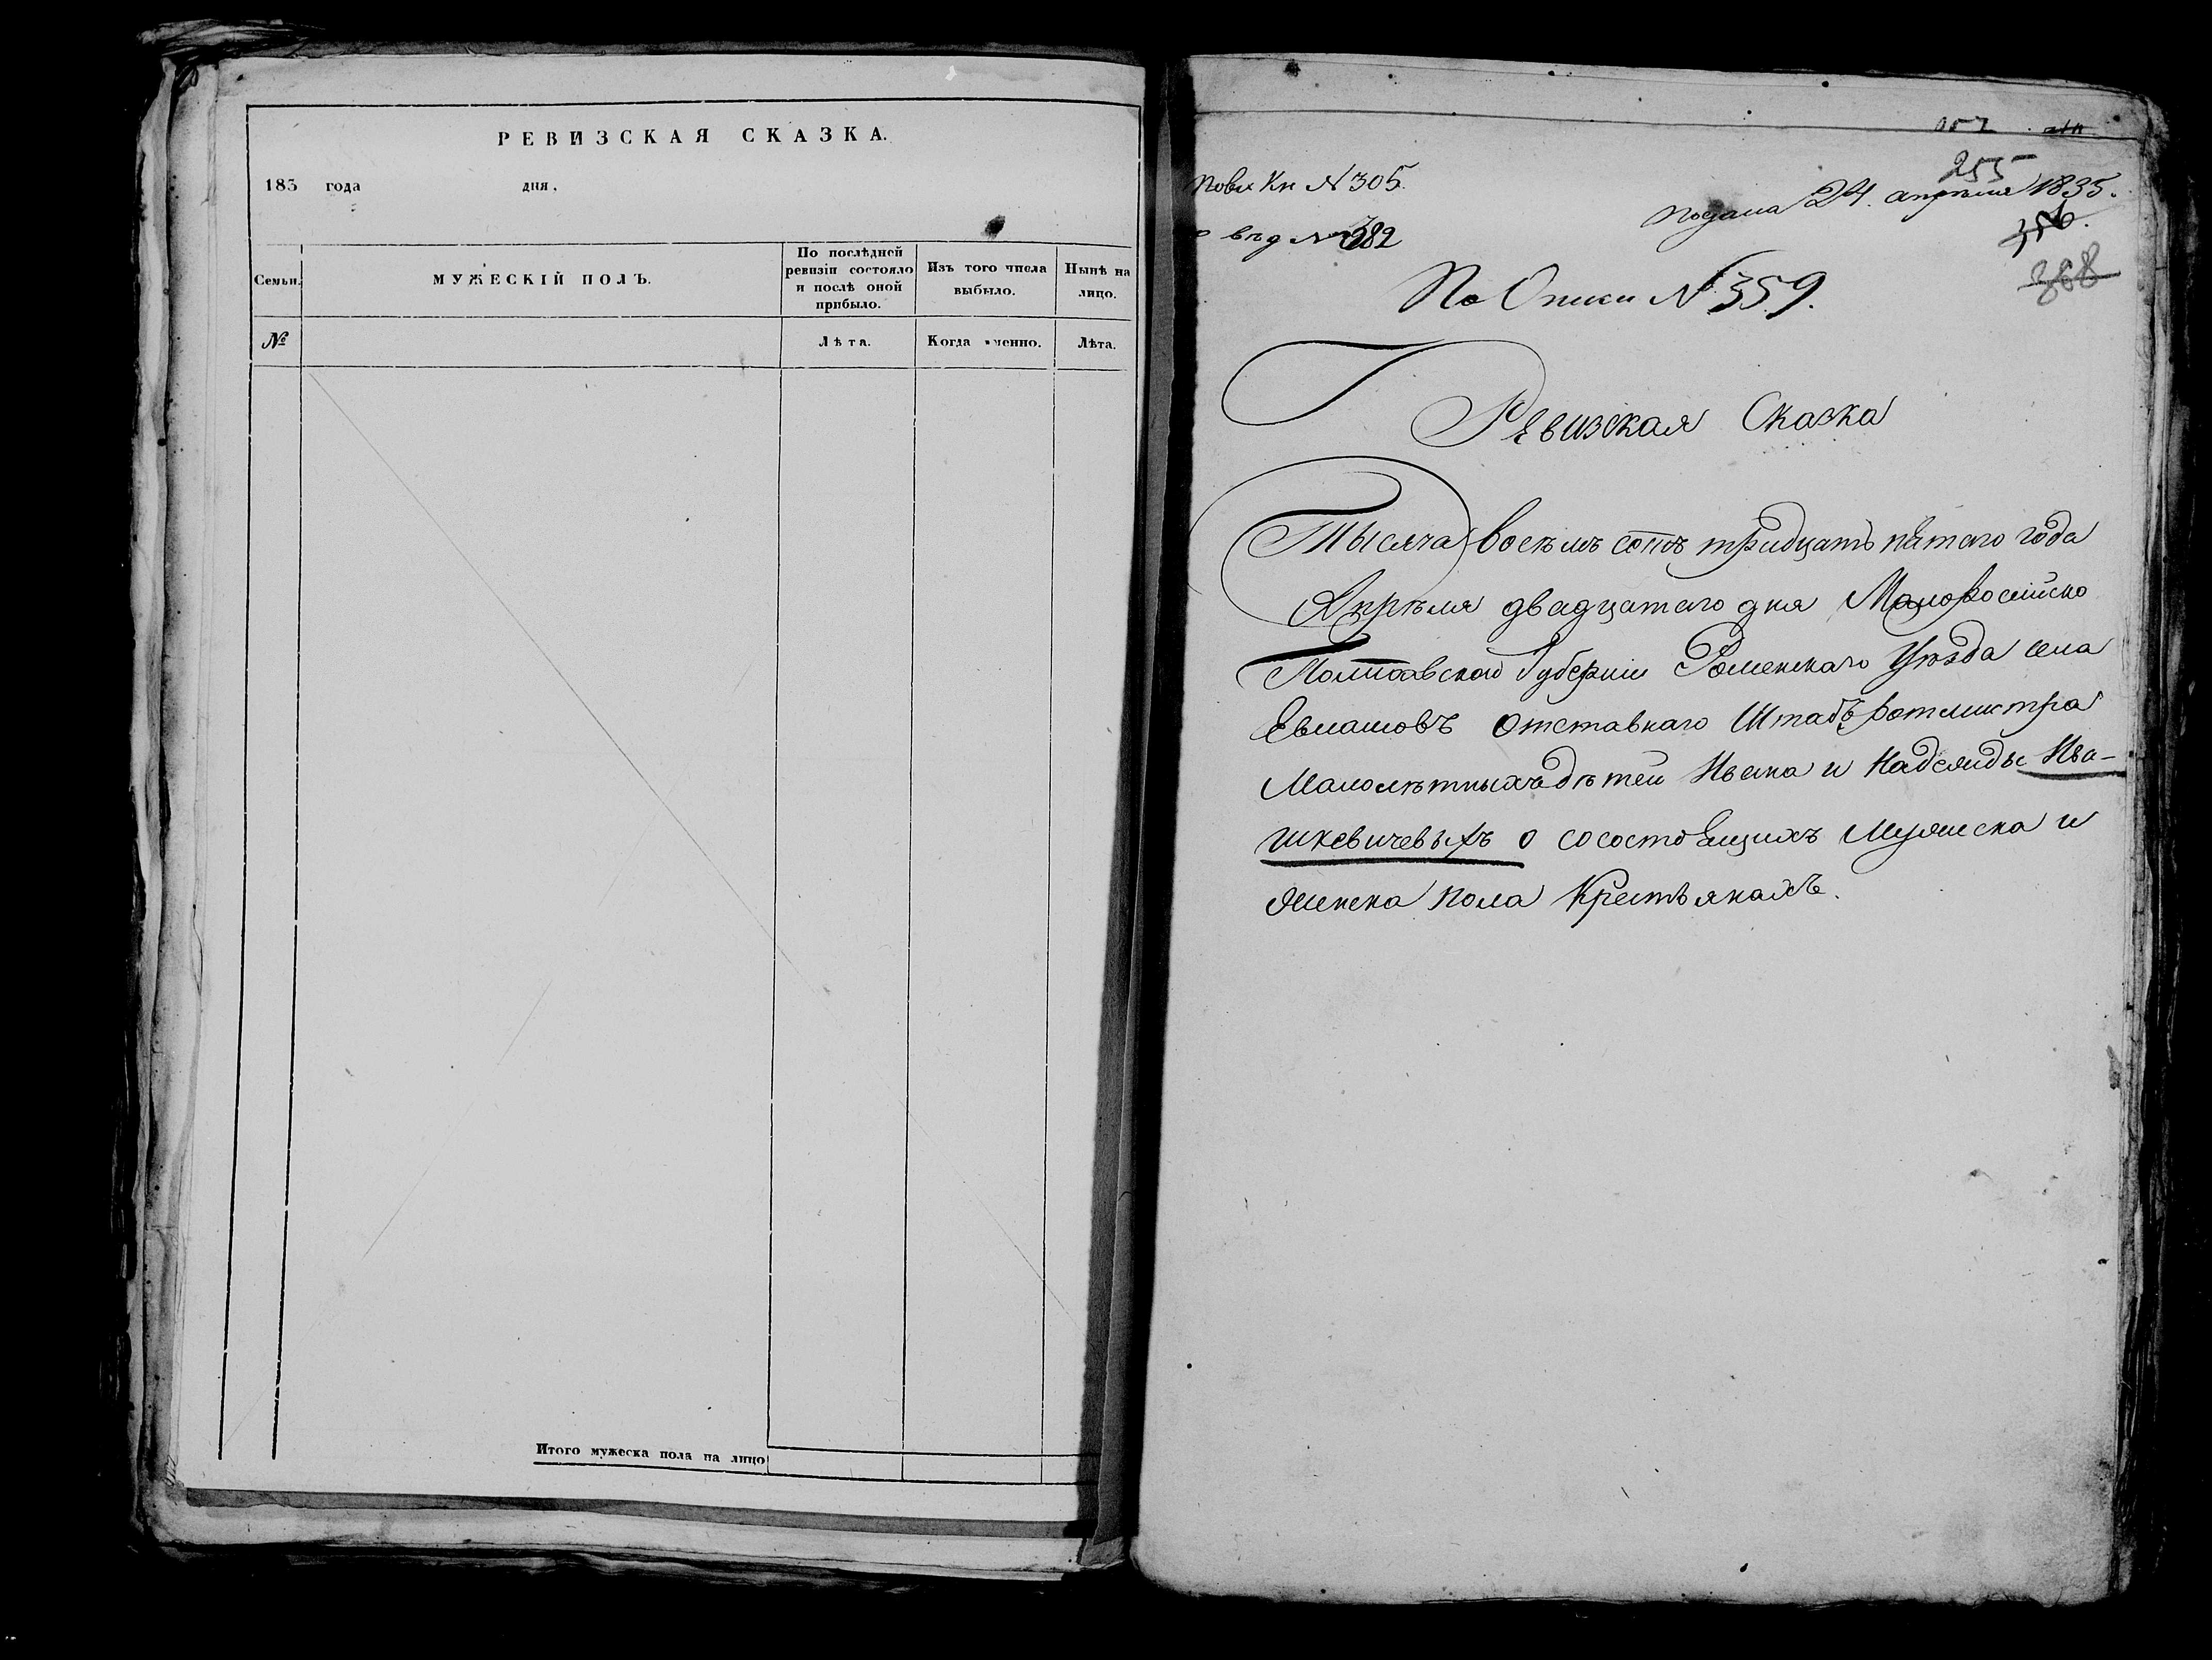 РЕВИЗСКАЯ СКАЗКА.
183 года дня.
Семьи.
МУЖЕСКІЙ ПОЛЪ.
По послѣдней ревизіи состояло и послѣ оной прибыло.
Изъ того числа выбыло.
Нынѣ на лицо.
№
Лѣта.
Когда именно.
Лѣта.
Итого мужеска пола на лицо
255
Кн №305.
подана 24. апреля 1835.
356.
вѣд №382
368
По Описи №359.
Ревизская Сказка
Тысяча восемь сотъ тридцать пятаго года
Апреля двадцатаго дня Малоросійско
Полтавской Губерніи Роменскаго Уѣзда села
Евлашовъ Отставнаго Штабъ ротмистра
Малолѣтныхъ дѣтей Ивана и Надежды Ива-
шкевичевыхъ о сосостоящихъ мужеска и
женска пола Крестьянахъ.